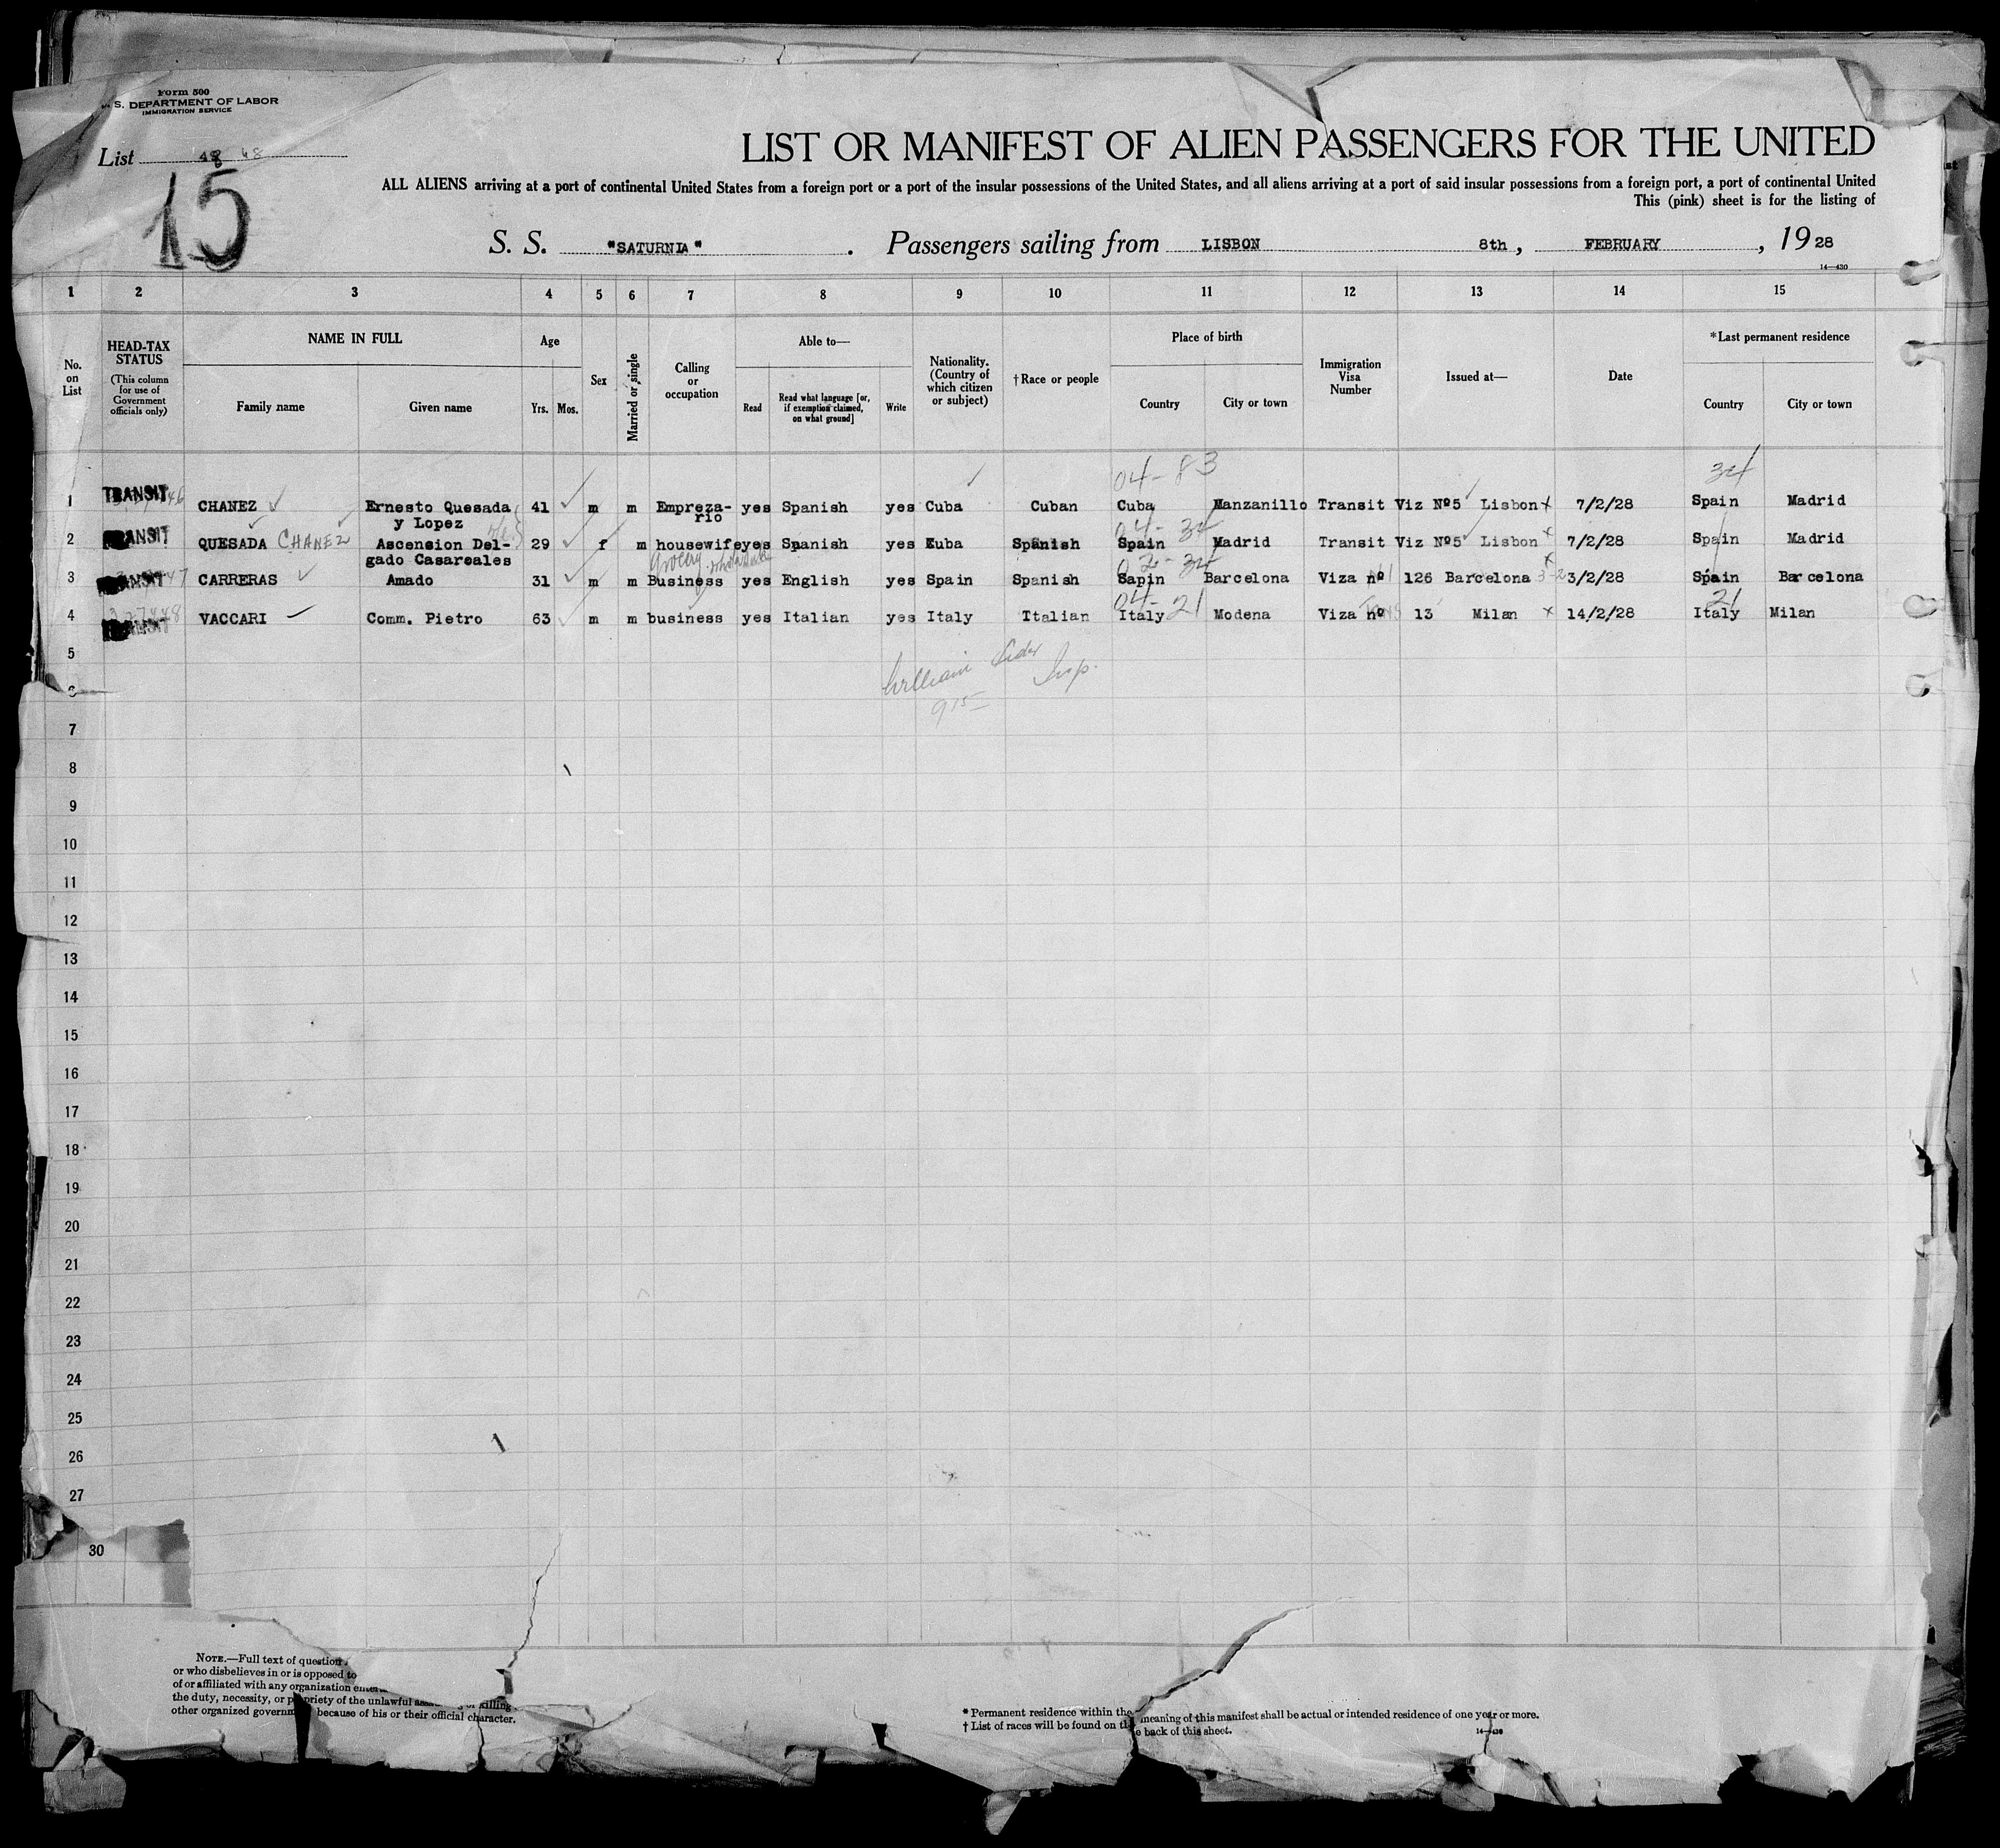 Form 500
S. DEPARTMENT OF LABOR
IMMIGRATION SERVICE
List 48 48
15
LIST OR MANIFEST OF ALIEN PASSENGERS FOR THE UNITED
ALL ALIENS arriving at a port of continental United States from a foreign port or a port of the insular possessions of the United States, and all aliens arriving at a port of said insular possessions from a foreign port, a port of continental United
This (pink) sheet is for the listing of
S. S. "SATURNIA". Passengers sailing from LISBON 8th, FEBRUARY, 1928
14—430
1 2 3 4 5 6 7 8 9 10 11 12 13 14 15
No. on List
HEAD-TAX STATUS
(This column for use of Government officials only)
NAME IN FULL
Family name
Given name
Age
Yrs. Mos.
Sex
Married or single
Calling or occupation
Able to—
Read
Read what language [or, if exemption claimed, on what ground]
Write
Nationality. (Country of which citizen or subject)
†Race or people
Place of birth
Country
City or town
Immigration Visa Number
Issued at—
Date
*Last permanent residence
Country
City or town
04-83 34
1 TRANSIT CHANEZ Ernesto Quesada y Lopez 41 m m Emprezario yes Spanish yes Cuba Cuban Cuba Manzanillo Transit Viz Nº5 Lisbon 7/2/28 Spain Madrid
04-34
2 ANSIT QUESADA CHANEZ Ascension Delgado Casareales 29 f m housewife yes Spanish yes Kuba Spanish Spain Madrid Transit Viz Nº5 Lisbon 7/2/28 Spain Madrid
Grocery 02-34
3 ANSIT CARRERAS Amado 31 m m Business yes English yes Spain Spanish Sapin Barcelona Viza nº 126 Barcelona 3/2/28 Spain Barcelona
04-21 21
4 VACCARI Comm. Pietro 63 m m business yes Italian yes Italy Ttalian Italy Modena Viza nº 13 Milan 14/2/28 Italy Milan
5
William Insp.
915
7
8
9
10
11
12
13
14
15
16
17
18
19
20
21
22
23
24
25
26
27
30
NOTE.—Full text of question
or who disbelieves in or is opposed to
of or affiliated with any organization
the duty, necessity, or propriety of the unlawful killing
other organized government because of his or their official character.
* Permanent residence within the meaning of this manifest shall be actual or intended residence of one year or more.
† List of races will be found on the back of this sheet.
14—430